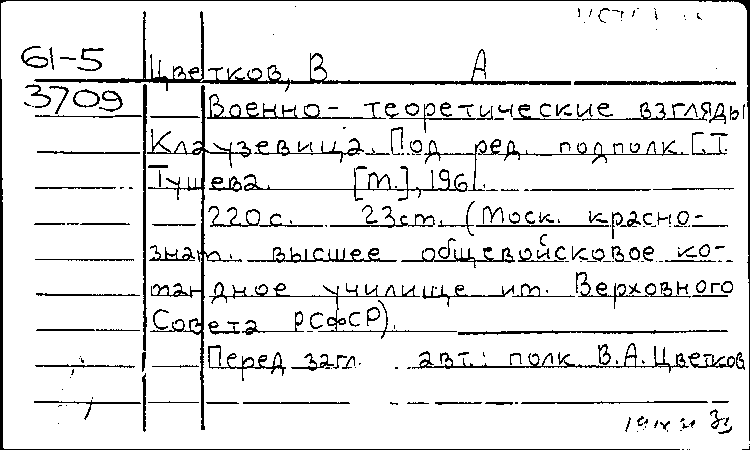 61-5 Цветков, В А
3709 Военно- теоретические взгляды
Клаузевица. Под ред. подполк. Г.Т.
Тушева. [М.], 1961.
220 с. 23 см. (Моск. красно-
знам. высшее общевойсковое ко-
мандное училище им. Верховного
Совета РСФСР).
Перед загл. авт.: полк. В.А. Цветков